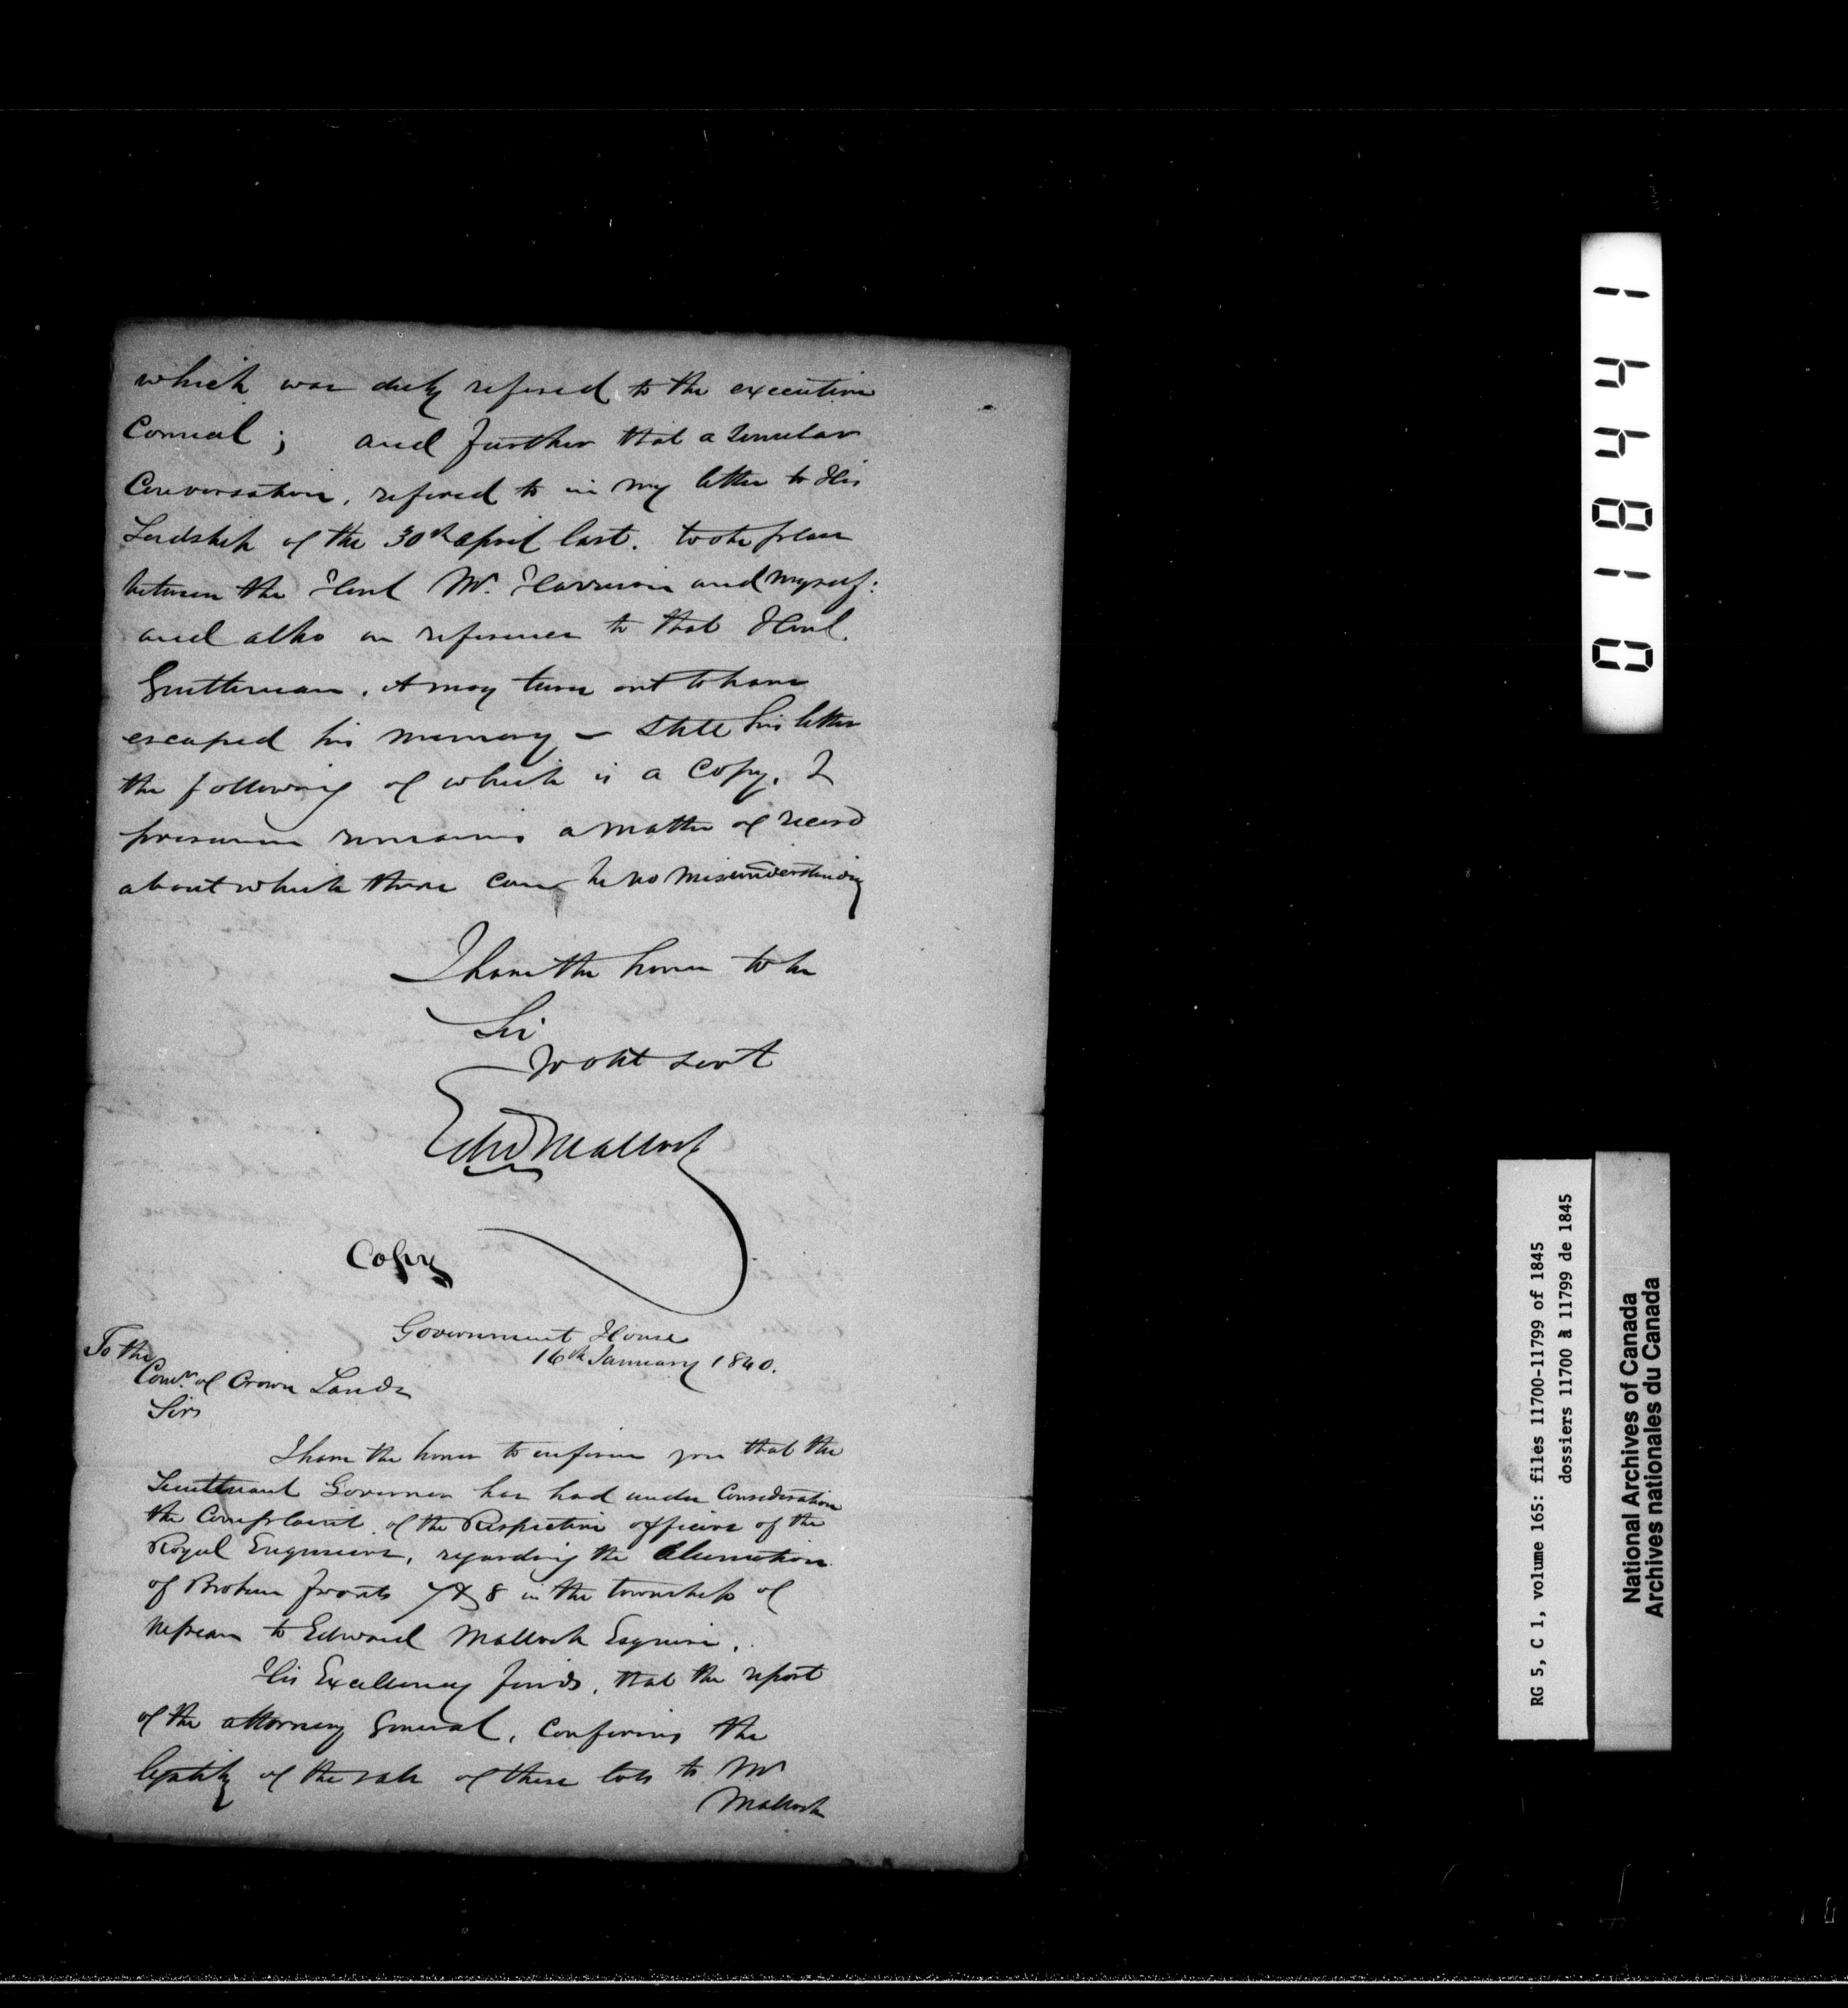 which was duly refered to the executive
Council; and further that a similar
Conversation, refered to in my letter to His
Lordship of the 30th april last. took place
between the Honl Mr. Harrison and myself:
and altho on reference to that Honl.
Gentleman, it may turn out to have
escaped his memory – still his letter
the following of which is a Copy, I
presume remains a matter of record
about which there can be no misunderstanding
I have the honor to be
Sir
Yr obt servt
Edwd Malloch
Copy
Government House
16th January 1840.
To the
Comr. of Crown Lands
Sir
I have the honor to inform you that the
Lieutenant Governor has had under Consideration
the Complaint of the Respective officers of the
Royal Engineers, regarding the alienation
of Broken fronts 7 & 8 in the township of
Nepean to Edward Malloch Esquire.
His Excellency finds, that the report
of the attorney General, Confirms the
legality of the sale of these lots to Mr
Malloch
018441
RG 5, C 1, volume 165: files 11700-11799 of 1845
dossiers 11700 à 11799 de 1845
National Archives of Canada
Archives nationales du Canada